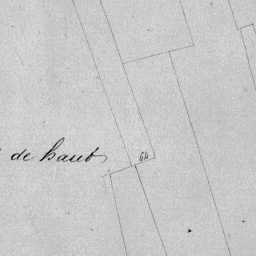 de haut
64